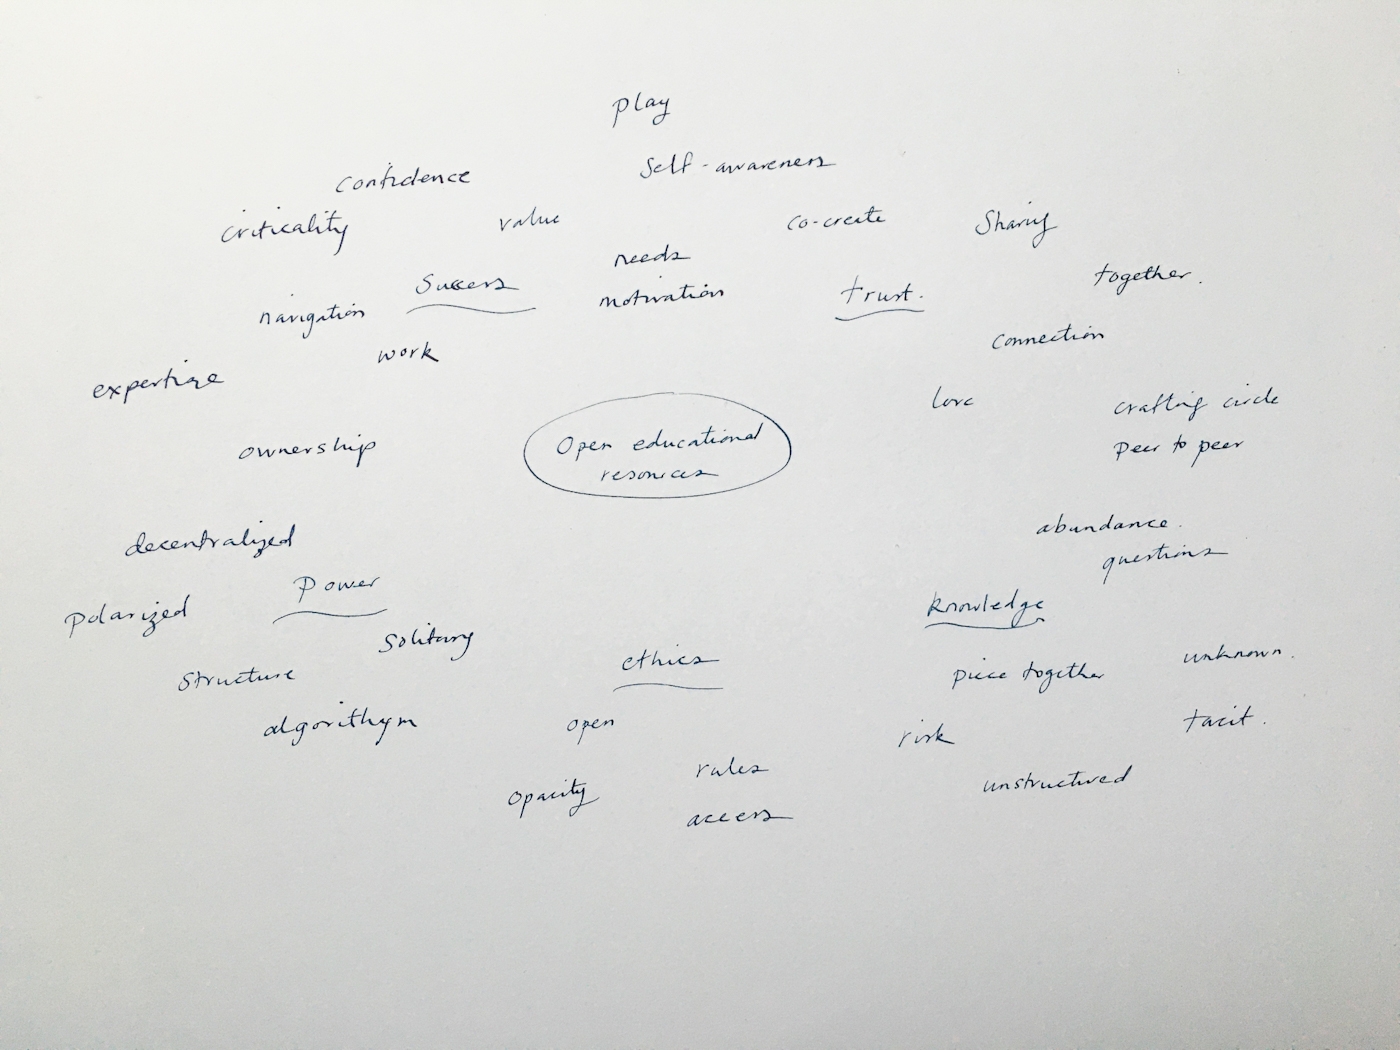 play
Self-awareness
confidence
criticality
value
co-create
Sharing
needs
together.
Success
motivation
trust.
navigation
connection
work
expertise
love
crafting circle
Open educational
resources
ownership
peer to peer
abundance.
decentralized
questions
Power
polarized
knowledge
solitary
ethics
unknown.
structure
piece together
algorithym
open
tacit.
risk
rules
unstructured
opacity
access